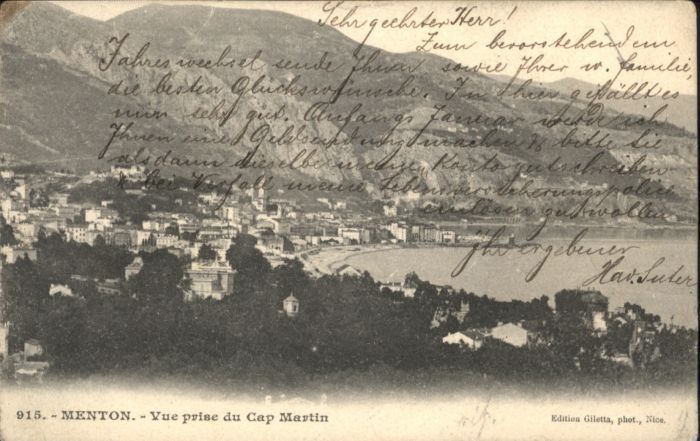 Sehr geehrter Herr!
Zum bevorstehendem
Jahreswechsel sende Ihnen sowie Ihrer w. Familie
die besten Glückswünsche. In hier gefällt es
mir sehr gut. Anfangs Januar werde ich
Ihnen eine Geldsendung machen & bitte Sie
alsdann dieselbe meinem Konto gutschreiben
& bei Verfall meine Lebensversicherungspolice
einlösen zu wollen
Ihr ergebener
Suter
915. - MENTON. - Vue prise du Cap Martin
Edition Giletta, phot., Nice.